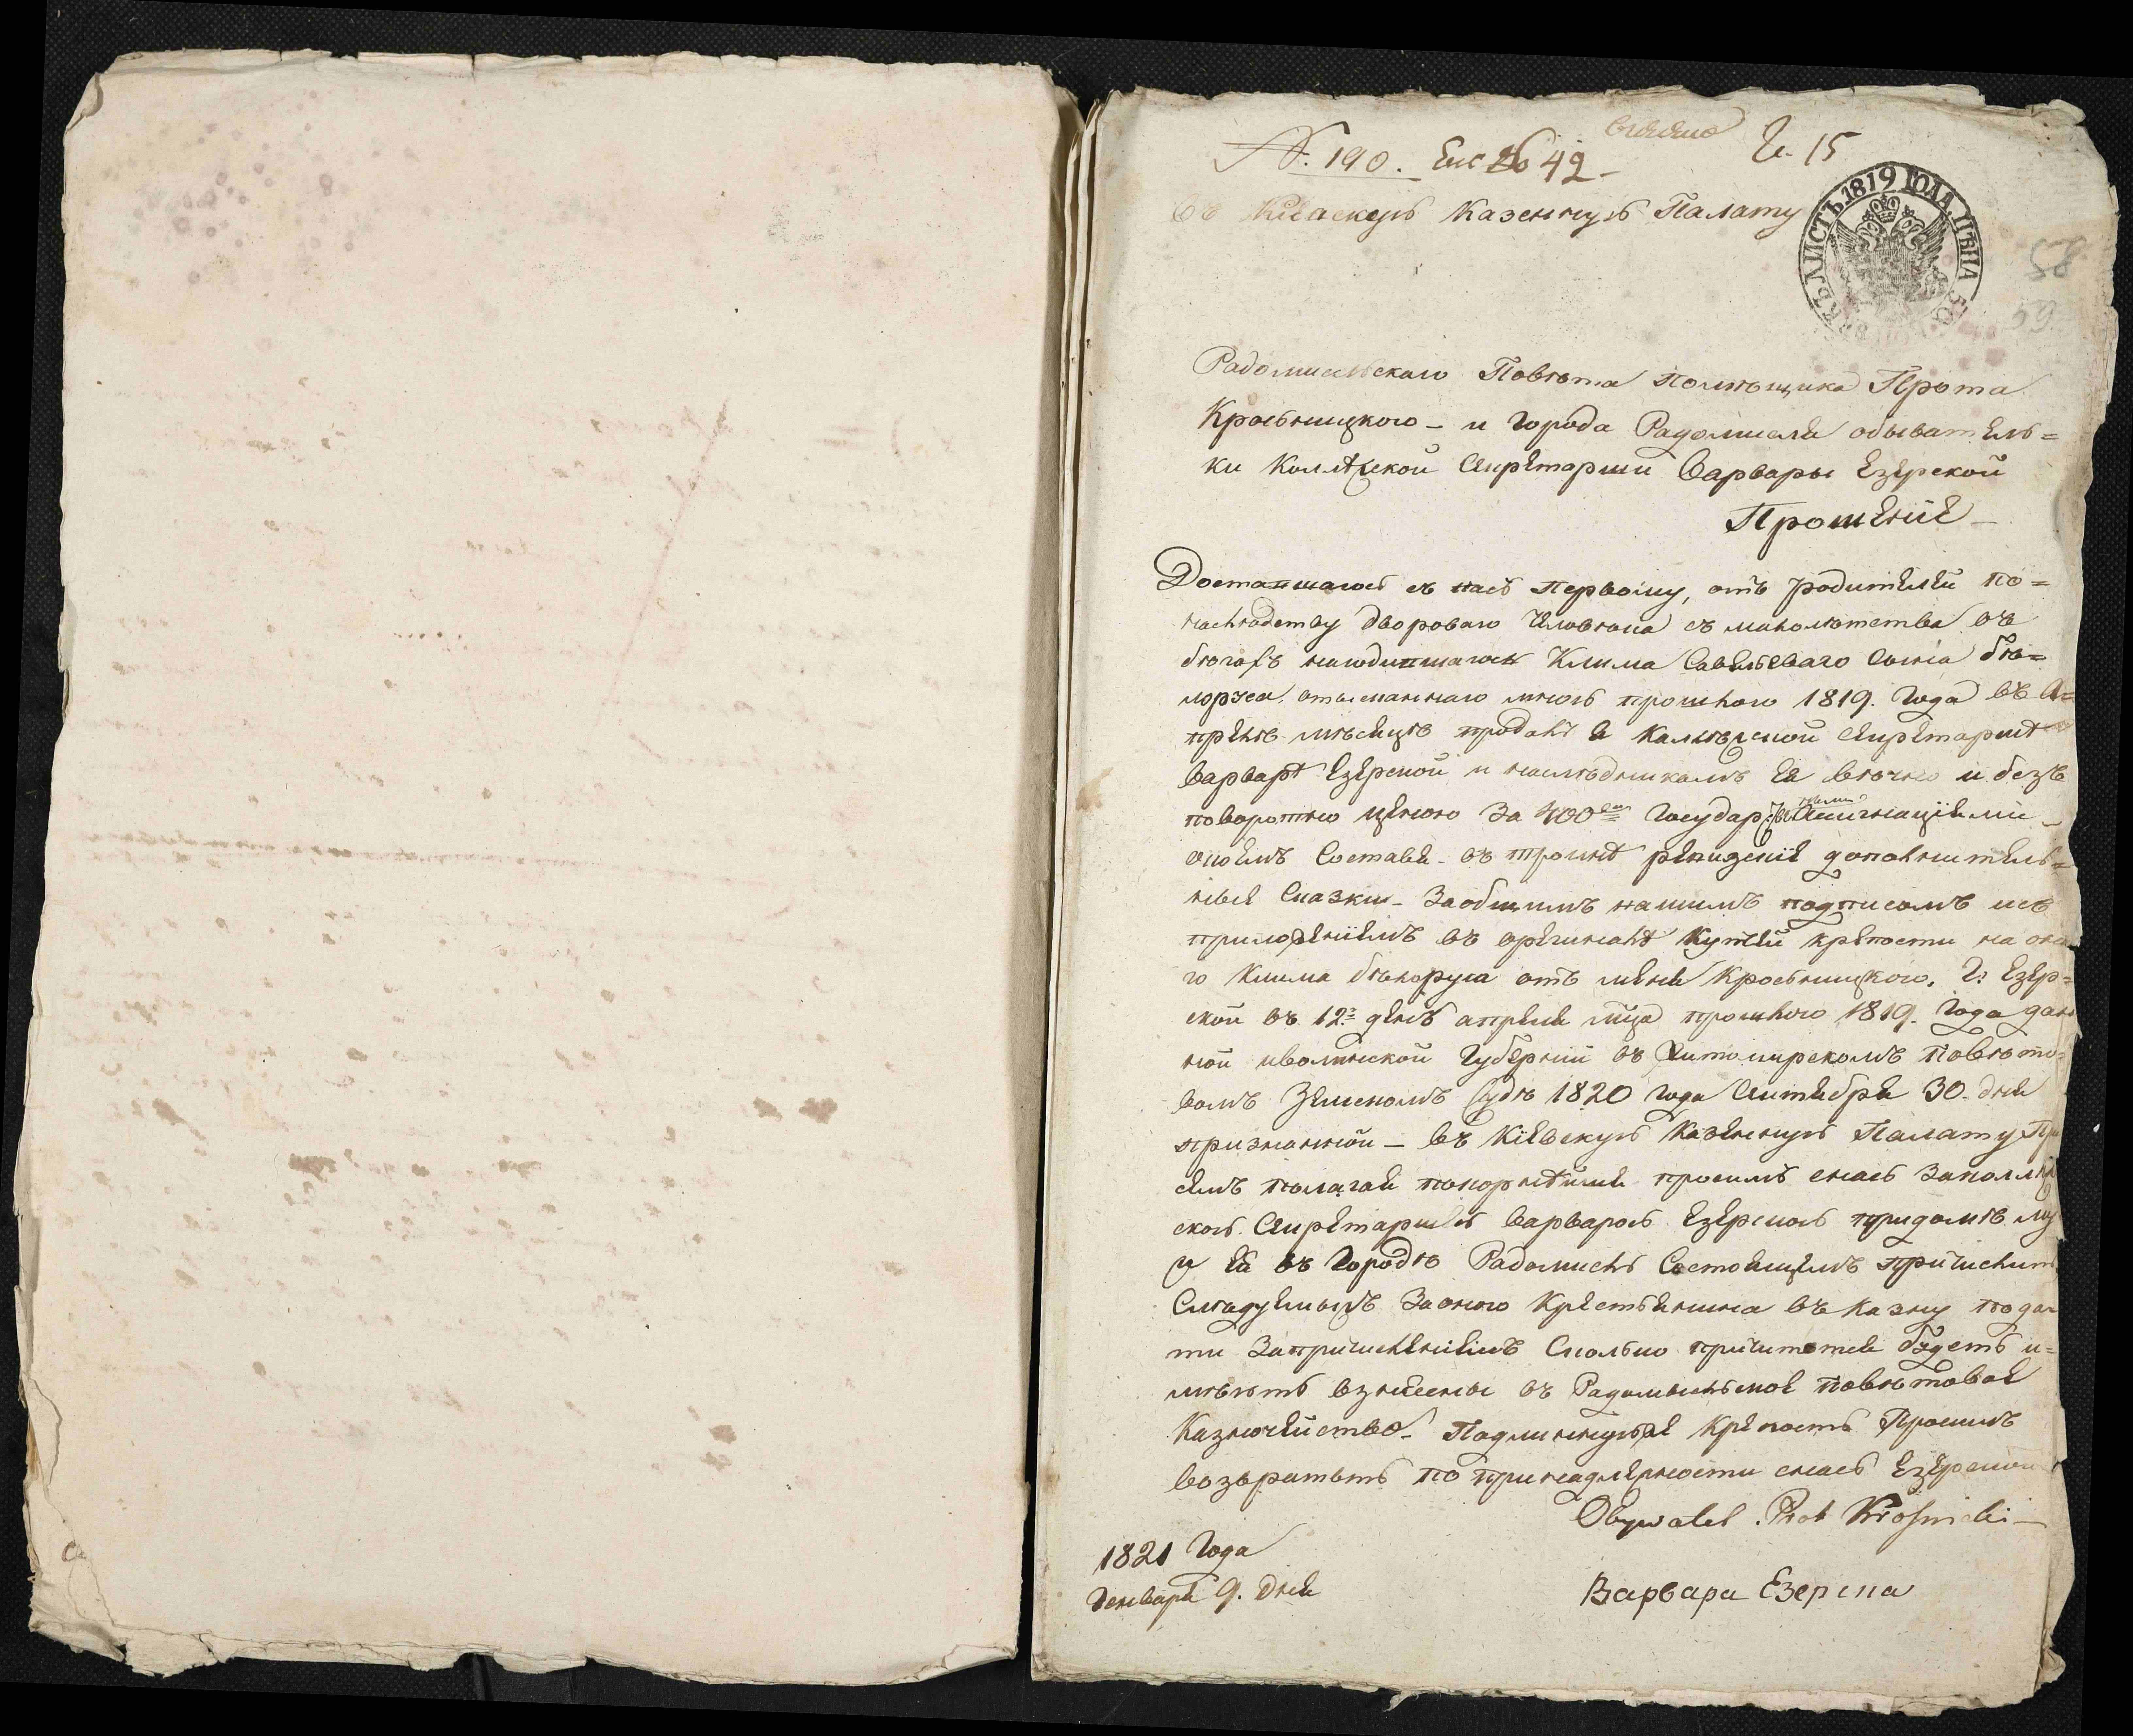 №. 190. 42
Г. 15
въ Кіевскую Казенную Палату
ЛИСТЪ. 1819 ГОДА. ЦѢНА 50
58
59
Радомисльскаго Повѣта помѣщика Прота
Кросьницкого - и города Радомисля обыватель=
ки Коллежской Секретарши Варвары Езерской
Прошеніе
Доставшагось съ насъ первому, отъ родителей по=
наслѣдству двороваго человѣка съ малолѣтства въ
бѣгахъ находившагось Клима Савельеваго сына бѣ=
лоруса, отысканнаго мною прошлого 1819. Года въ А=
прелѣ мѣсяцѣ продалъ я Коллежской Секретаршѣ
Варварѣ Езерской и наслѣдникамъ Ея вѣчно и безъ
поворотно цѣною за 400 Государ: Ассигнаціями
Составя въ тройнѣ дополнитель=
ныя Сказки - Заобщимъ нашимъ подписомъ исъ
приложеніемъ въ оригиналѣ купчей крепости на она
го Клима бѣлоруса отъ меня Кросьницкого, Г: Езер=
ской въ 12: день апреля мца прошлого 1819. Года дан
ной иволынской Губерніи въ Житомирскомъ Повѣто=
вомъ Земскомъ Судѣ 1820 года Сентября 30. дня
признанной - въ Кіевскую Казенную Палату При
семъ полагая покорнѣйше просимъ снасъ Законоллеж
скою Секретаршею Варварою Езерскою придомѣ му
у Ея въ Городѣ Радомислѣ Состоящемъ причислить
Слѣдуемыхъ Заоного крестьянина въ казну пода
ти Запричисленіемъ Сколько причтется будетъ и=
мѣютъ взнесены въ Радомысльское повѣтовое
Казначейство. Подлинную же крепость Просимъ
возвратить по принадлежности снасъ Езерской
Obywatel Prot Krośnicki
1821 Года
Генваря 9. Дня
Варвара Езерска